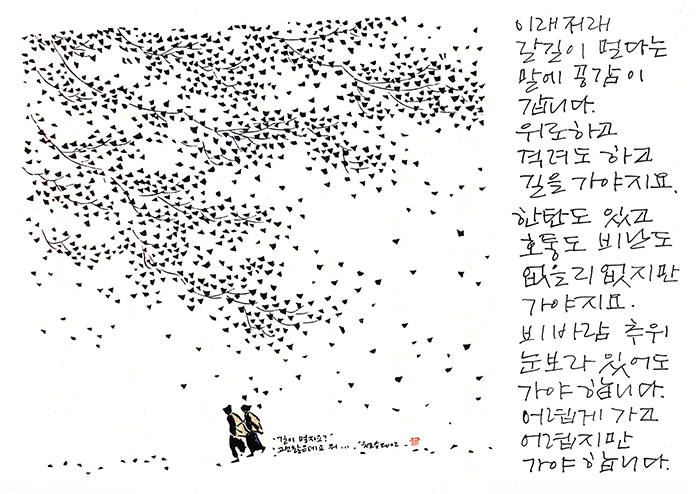 이래저래
갈길이 멀다는
말에 공감이
갑니다.
위로하고
격려도 하고
길을 가야지요.
한탄도 있고
호통도 비난도
없을리 없지만
가야지요.
비바람 추위
눈보라 있어도
가야 합니다.
어렵게 가고
어렵지만
가야 합니다.
길이 멀지요?
뭐 ....